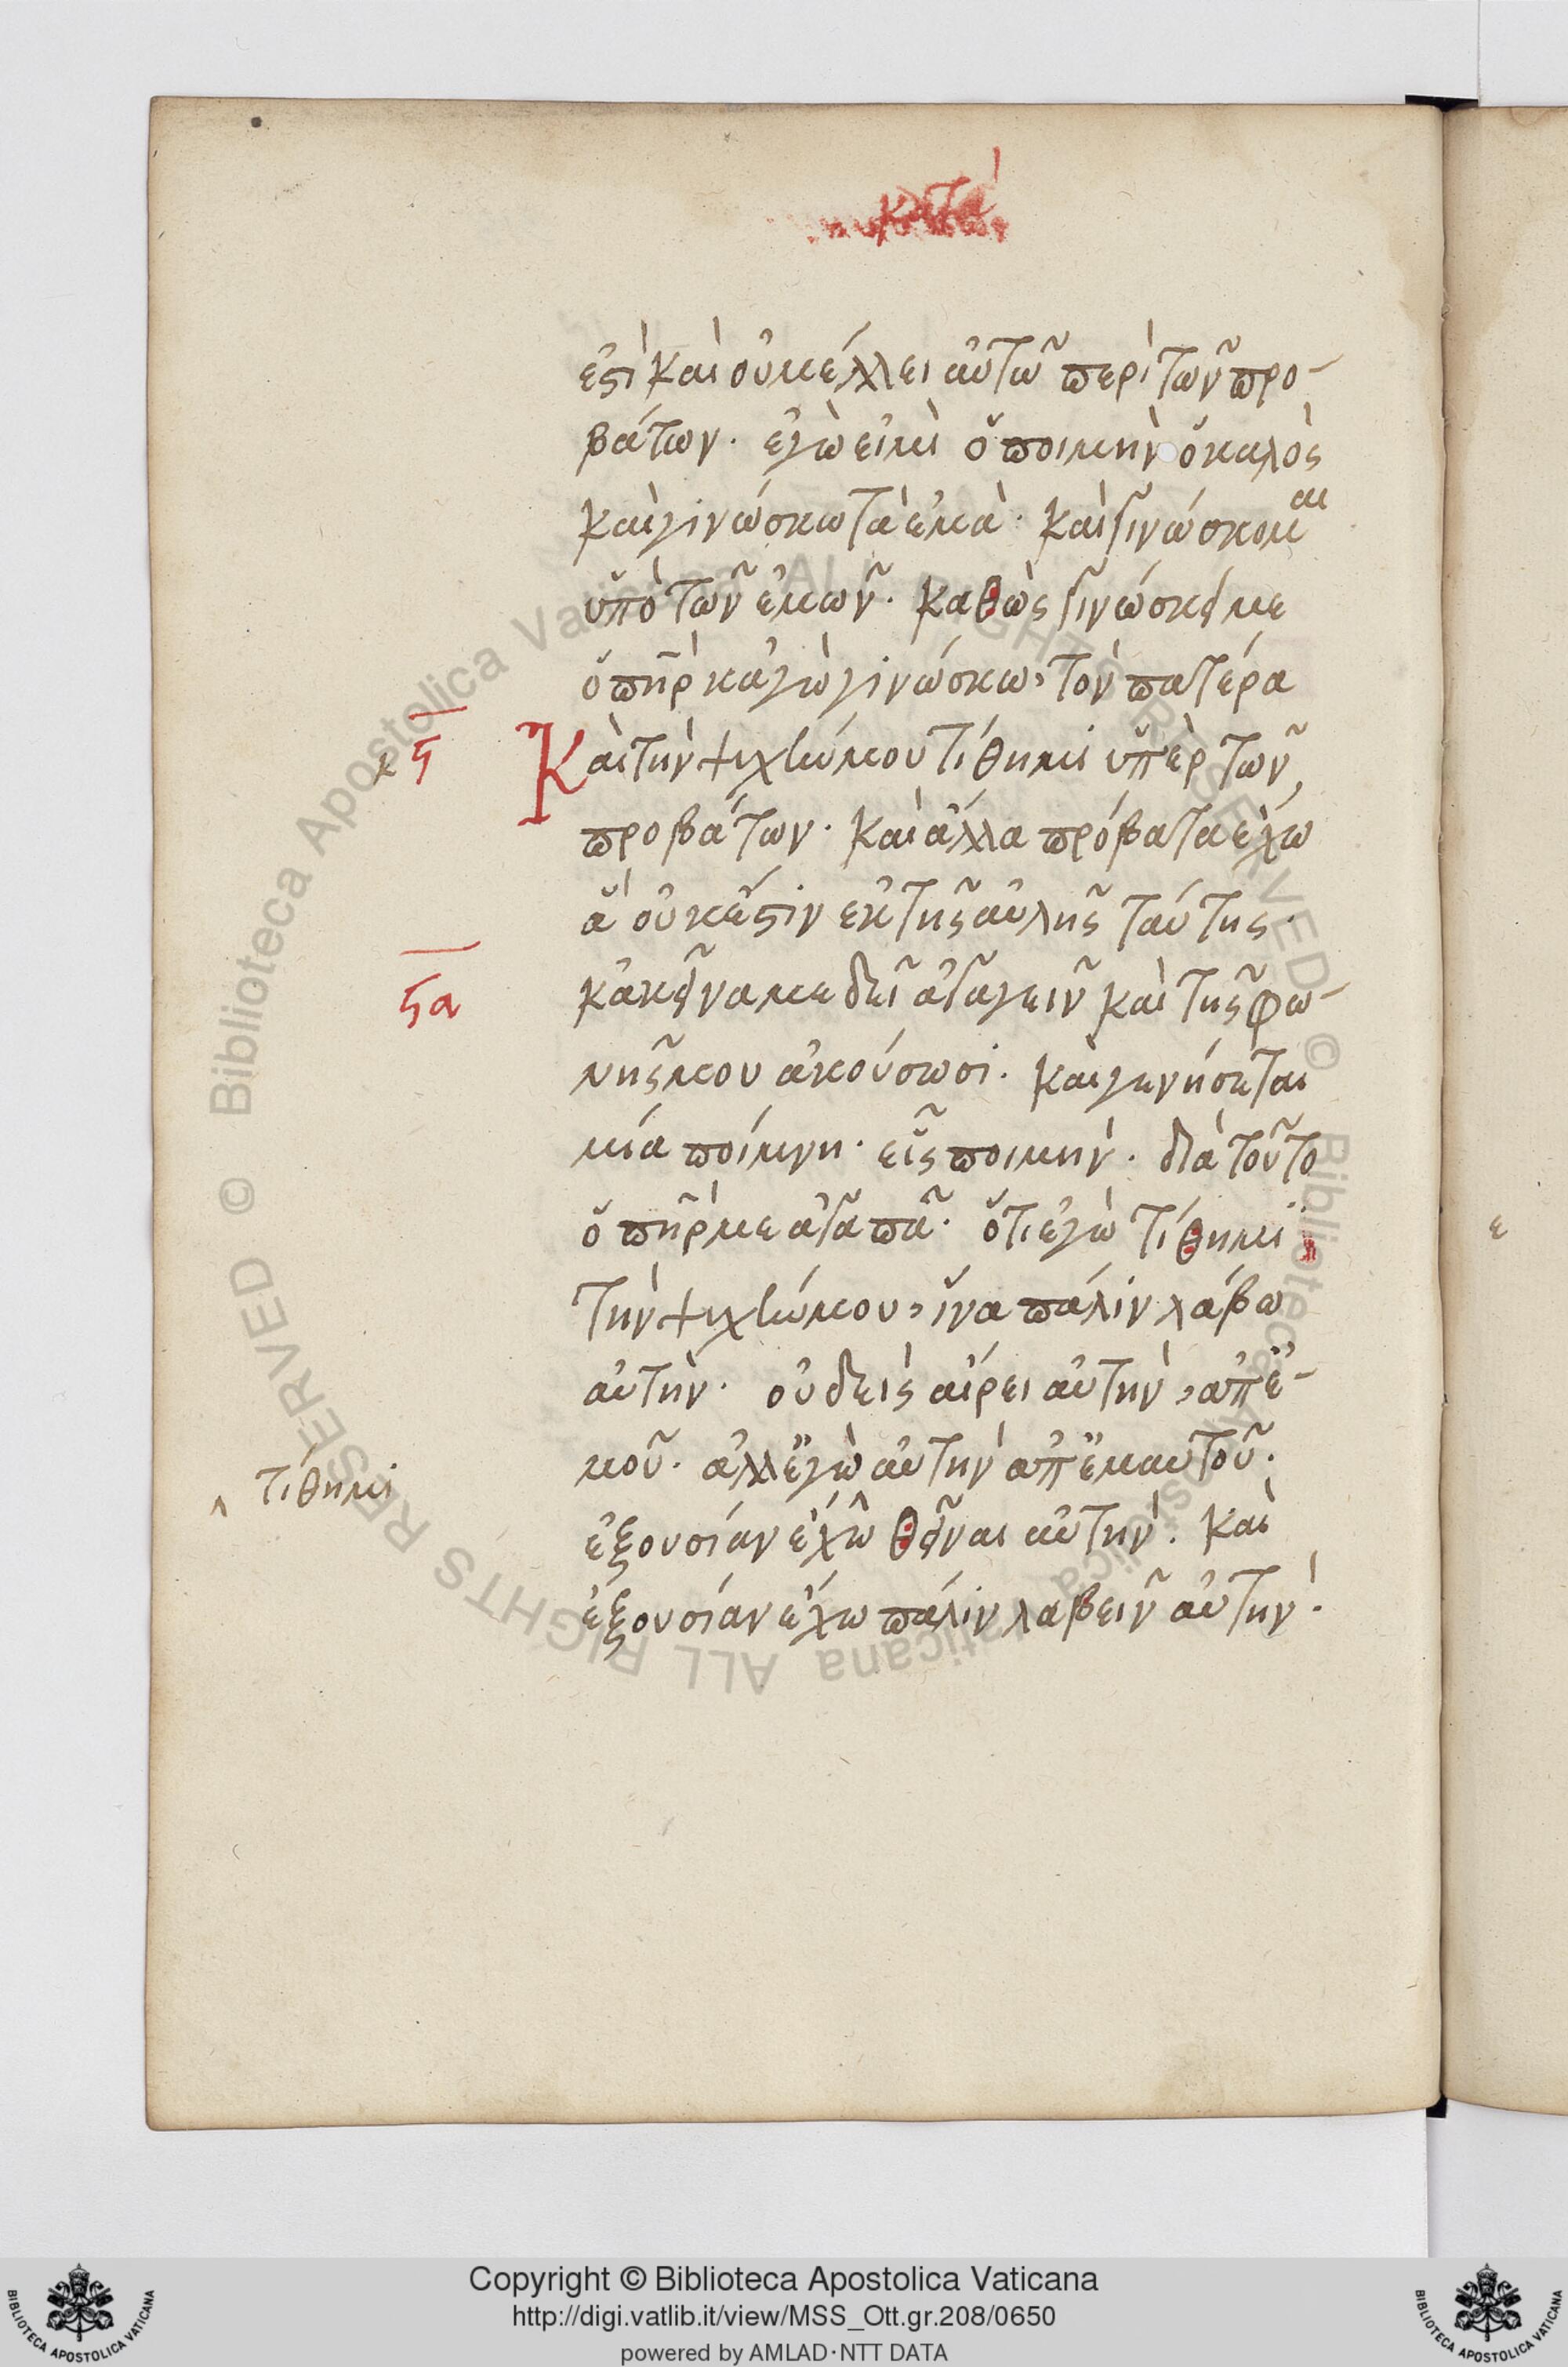 κατὰ
ἐστὶ καὶ οὐ μέλλει αὐτῶ περὶ τῶν προ-
βάτων. ἐγὼ εἰμὶ ὁ ποιμὴν ὁ καλὸς
καὶ γινώσκω τὰ ἐμὰ. καὶ γινώσκομαι
ὑπὸ τῶν ἐμῶν. καθὼς γινώσκει με
ὁ πὴρ κἀγὼ γινώσκω, τὸν πατέρα
ϟ Καὶ τὴν ψυχήν μου τίθημι ὑπὲρ τῶν
προβάτων. καὶ ἄλλα πρόβατα ἔχω
ἃ οὐκ ἔστιν ἐκ τῆς αὐλῆς ταύτης.
ϟα κἀκεῖνα με δεῖ ἀγαγεῖν καὶ τῆς φω-
νῆς μου ἀκούσωσι. καὶ γενήσεται
μία ποίμνη. εἷς ποιμήν. διὰ τοῦτο
ὁ πὴρ με ἀγαπᾶ. ὅτι ἐγὼ τίθημι
τὴν ψυχήν μου, ἵνα πάλιν λάβω
αὐτὴν. οὐδεὶς αἴρει αὐτὴν, ἀπ' ἐ-
μοῦ. ἀλλ' ἐγὼ αὐτὴν ἀπ' ἐμαυτοῦ.
τίθημι
ἐξουσίαν ἔχω θεῖναι αὐτήν. καὶ
ἐξουσίαν ἔχω πάλιν λαβεῖν αὐτήν.
Copyright © Biblioteca Apostolica Vaticana
http://digi.vatlib.it/view/MSS_Ott.gr.208/0650
powered by AMLAD·NTT DATA
Biblioteca Apostolica Vaticana ALL RIGHTS RESERVED ©
Biblioteca Apostolica Vaticana ALL RIGHTS RESERVED ©
BIBLIOTECA APOSTOLICA VATICANA
BIBLIOTECA APOSTOLICA VATICANA